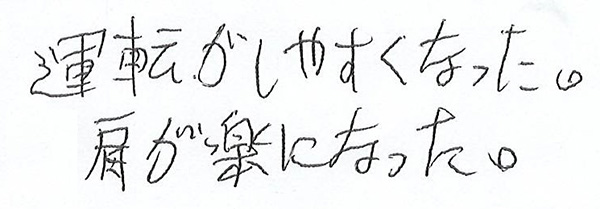 運転がしやすくなった。
肩が楽になった。